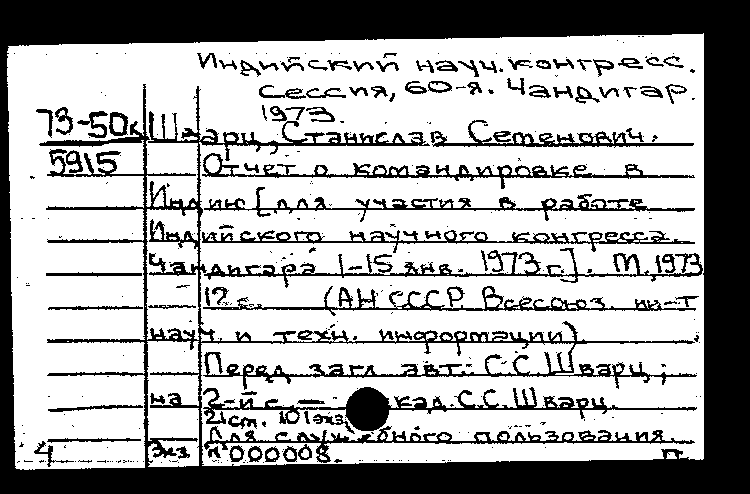 Индийский науч. конгресс.
Сессия, 60-я. Чандигар.
1973.
73-50к Шварц, Станислав Семенович.
5915 Отчет о командировке в
Индию [для участия в работе
Индийского научного конгресса.
Чандигара 1-15 янв. 1973 г.]. М., 1973
12 с. (АН СССР Всесоюз. ин-т
науч. и техн. информации)
Перед загл. авт.: С.С. Шварц;
на 2-й с. — кад. С.С. Шварц.
21 см. 101 экз.
Для служебного пользования.
4 Экз №000008. П